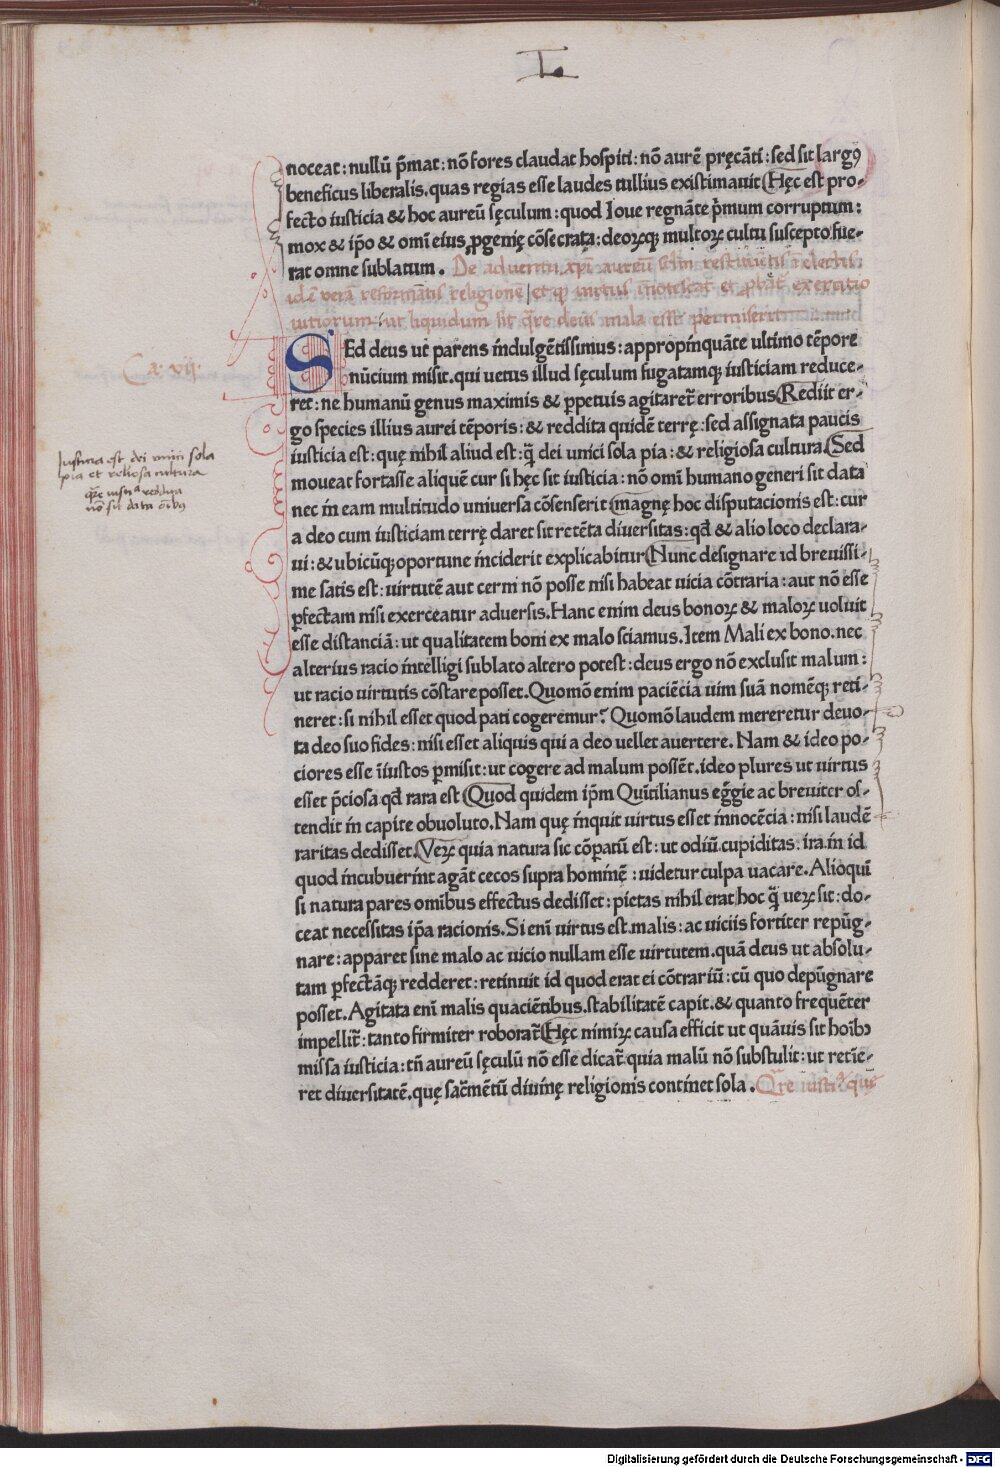 I
noceat : nullū p̄mat : nō fores claudat hospiti : nō aurē pręcāti : sed sit largꝰ
beneficus liberalis . quas regias esse laudes tullius existimauit (Hęc est pro-
fecto iusticia & hoc aureū sęculum : quod Ioue regnāte p̄mum corruptum :
mox & ip̄o & om̄i eius ꝓgenię cōsecrata : deoꝝq; multoꝝ cultu suscepto fue-
rat omne sublatum . De aduentu xp̄i aureū sc̄lm restituētis ī electis
idē verā reformātis religionē | et qꝫ virtus īnotescat̄ et ꝓbat̄ exercitio
uitiorum . ut liquidum sit q̄re deus mala esse permiserit
SEd deus ut parens indulgētissimus : appropinquāte ultimo tēpore
nūcium misit . qui uetus illud sęculum fugatamq; iusticiam reduce-
ret : ne humanū genus maximis & ꝑpetuis agitaret̄ erroribus (Rediit er-
go species illius aurei tēporis : & reddita quidē terrę : sed assignata paucis
iusticia est : quę nihil aliud est : q̄̄ dei unici sola pia : & religiosa cultura (Sed
moueat fortasse aliquē cur si hęc sit iusticia : nō om̄i humano generi sit data
nec in eam multitudo uniuersa cōsenserit (magnę hoc disputacionis est : cur
a deo cum iusticiam terrę daret sit retēta diuersitas : qđ & alio loco declara-
ui : & ubicūq; oportune inciderit explicabitur (Nunc designare id breuissi-
me satis est : uirtutē aut cerni nō posse nisi habeat uicia cōtraria : aut nō esse
ꝑfectam nisi exerceatur aduersis . Hanc enim deus bonoꝝ & maloꝝ uoluit
esse distanciā : ut qualitatem boni ex malo sciamus . Item Mali ex bono . nec
alterius racio intelligi sublato altero potest : deus ergo nō exclusit malum :
ut racio uirtutis cōstare posset . Quomō enim paciēcia uim suā nomēq; reti-
neret : si nihil esset quod pati cogeremur? Quomō laudem mereretur deuo-
ta deo suo fides : nisi esset aliquis qui a deo uellet auertere . Nam & ideo po-
ciores esse īiustos ꝑmisit : ut cogere ad malum possēt . ideo plures ut uirtus
esset p̄ciosa qđ rara est (Quod quidem ip̄m Quītilianus eḡgie ac breuiter os-
tendit in capite obuoluto . Nam quę inquit uirtus esset innocēcia : nisi laudē
raritas dedisset . (Veꝝ quia natura sic cōꝑatū est : ut odiū cupiditas . ira . in id
quod incubuerint agāt cecos supra hominē : uidetur culpa uacare . Alioquī
si natura pares omībus effectus dedisset : pietas nihil erat | hoc q̄̄ ueꝝ sit : do-
ceat necessitas ip̄a racionis . Si enī uirtus est . malis : ac uiciis fortiter repūg-
nare : apparet sine malo ac uicio nullam esse uirtutem . quā deus ut absolu-
tam ꝑfectāq; redderet : retinuit id quod erat ei cōtrariū : cū quo depūgnare
posset . Agitata enī malis quaciētibus . stabilitatē capit . & quanto frequēter
impellit̄ : tanto firmiter roborat̄ (Hęc nimiꝝ causa efficit ut quāuis sit hoībꝫ
missa iusticia : tn̄ aureū sęculū nō esse dicat̄ . quia malū nō substulit : ut retīe-
ret diuersitatē . quę sac̄mētū diuinę religionis continet sola . Q̄re iustiᵃ que
Ca. vij.
Iusticia est dei vnici sola
pia et religiosa cultura
Quare iustiᵃ
nō sit data oībꝰ
Digitalisierung gefördert durch die Deutsche Forschungsgemeinschaft - DFG